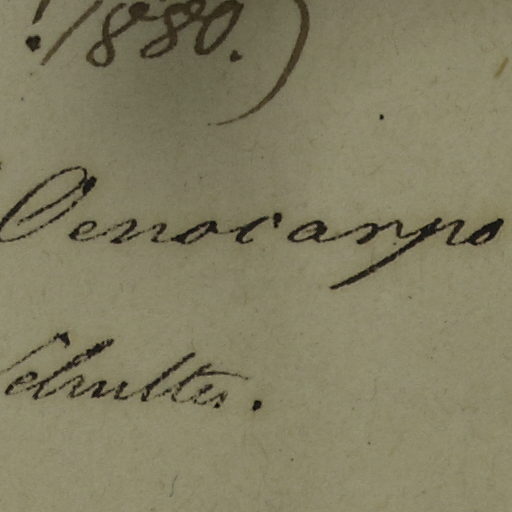 ! 1880.)
Oenocarpo
Schultes.